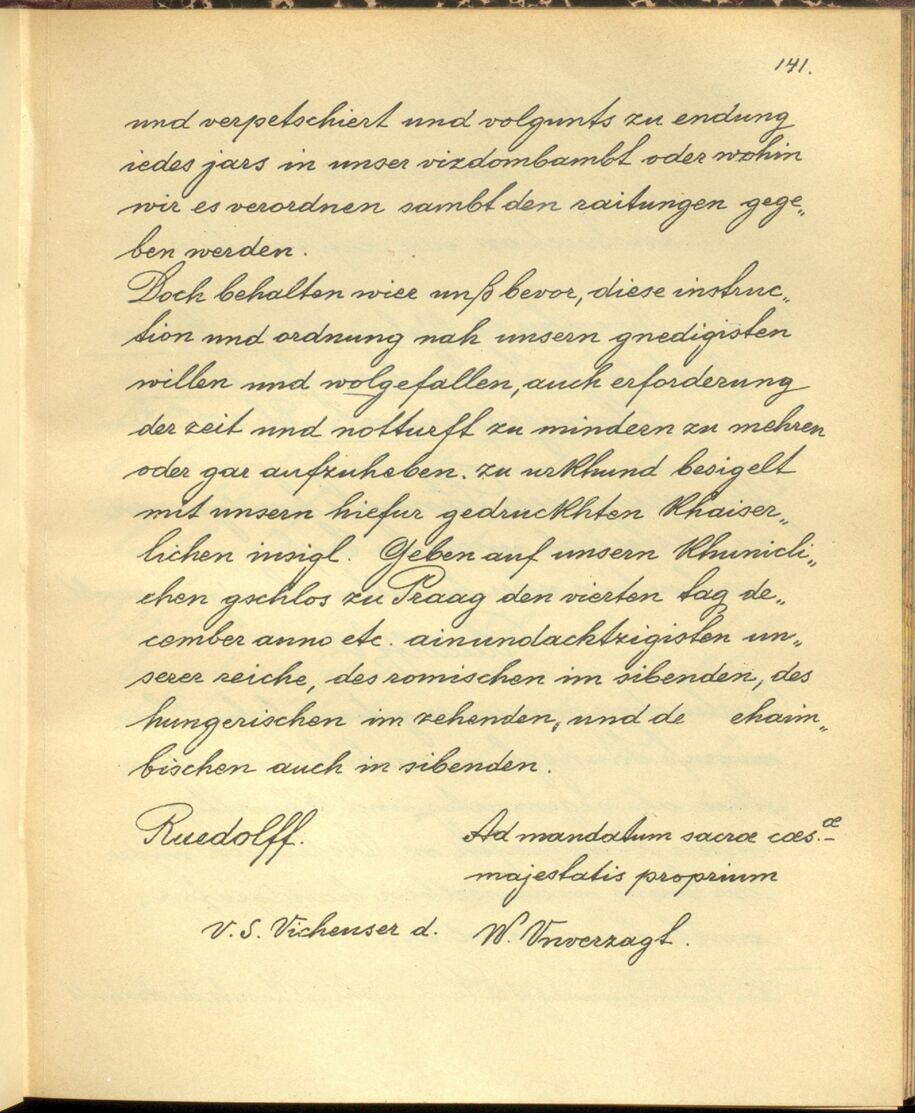 141.
und verpetschiert und volgunts zu endung
iedes jars in unser vizdombambt oder wohin
wir es verordnen sambt den raitungen gege„
ben werden.
Doch behalten wier unß bevor, diese instruc„
tion und ordnung nah unsern gnedigisten
willen und wolgefallen, auch erforderung
der zeit und notturft zu mindern zu mehren
oder gar aufzuheben. zu urkhund besigelt
mit unsern hiefur gedruckhten khaiser„
lichen insigl. Geben auf unsern khunicli„
chen gschlos zu Praag den vierten tag de„
cember anno etc. ainundachtzigisten un„
serer reiche, des romischen im sibenden, des
hungerischen im zehenden, und de ehaim„
bischen auch in sibenden.
Ruedolff. Ad mandatum sacræ cæs.æ
majestatis proprium
V. S. Vichenser d. W. Unverzagt.